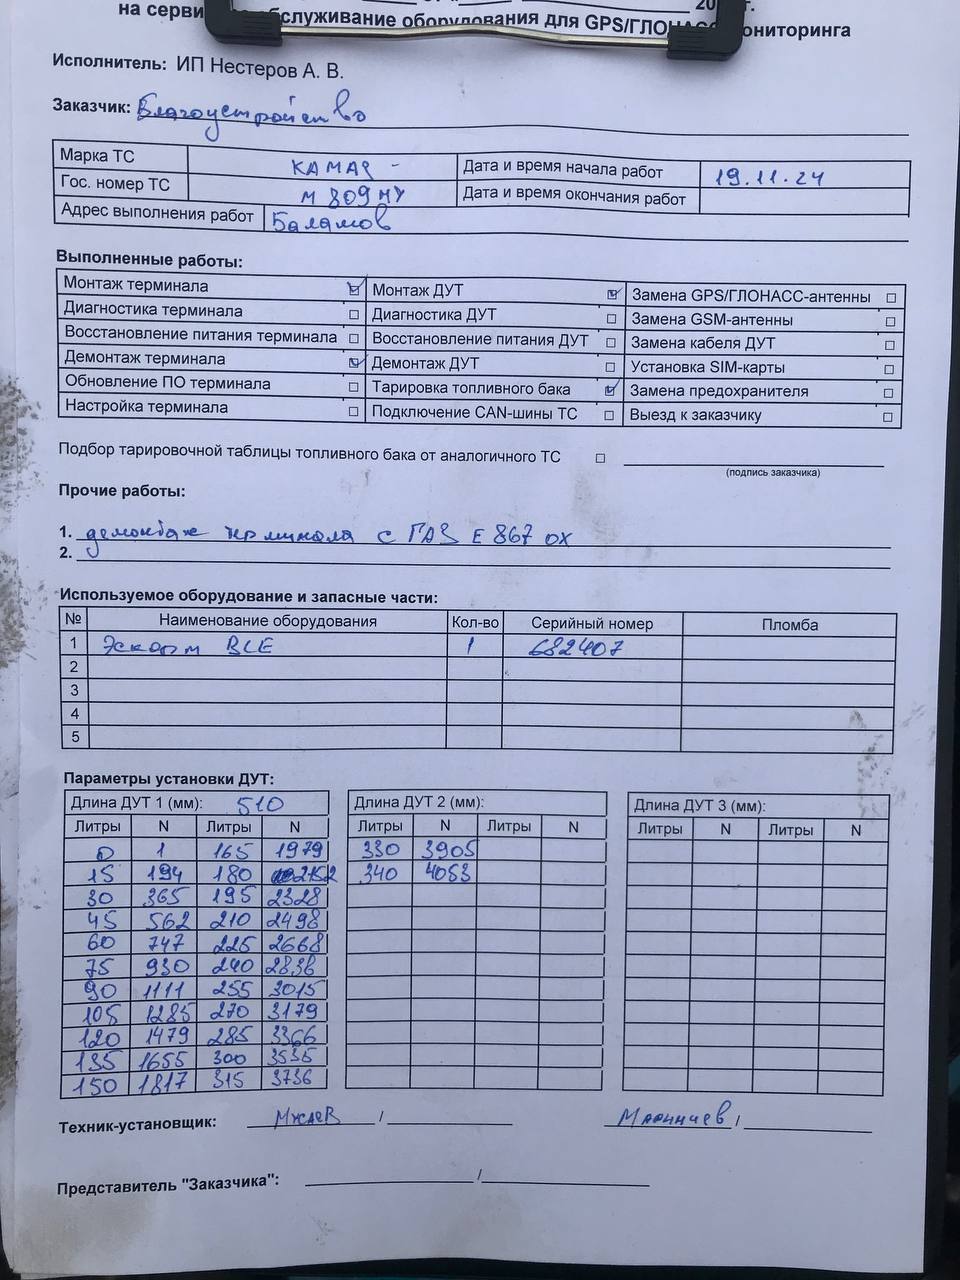 20 г.
на серви обслуживание оборудования для GPS/ГЛОНАСС мониторинга
Исполнитель: ИП Нестеров А. В.
Заказчик: Благоустройство
Марка ТС КАМАЗ - Дата и время начала работ 19.11.24
Гос. номер ТС М 809 МУ Дата и время окончания работ
Адрес выполнения работ Баламов
Выполненные работы:
Монтаж терминала ☑ Монтаж ДУТ ☑ Замена GPS/ГЛОНАСС-антенны ☐
Диагностика терминала ☐ Диагностика ДУТ ☐ Замена GSM-антенны ☐
Восстановление питания терминала ☐ Восстановление питания ДУТ ☐ Замена кабеля ДУТ ☐
Демонтаж терминала ☑ Демонтаж ДУТ ☐ Установка SIM-карты ☐
Обновление ПО терминала ☐ Тарировка топливного бака ☑ Замена предохранителя ☐
Настройка терминала ☐ Подключение CAN-шины ТС ☐ Выезд к заказчику ☐
Подбор тарировочной таблицы топливного бака от аналогичного ТС ☐
(подпись заказчика)
Прочие работы:
1. демонтаж терминала с ГАЗ Е 867 ОХ
2.
Используемое оборудование и запасные части:
№ Наименование оборудования Кол-во Серийный номер Пломба
1 Эскорт BLE 1 682407
2
3
4
5
Параметры установки ДУТ:
Длина ДУТ 1 (мм): 510 Длина ДУТ 2 (мм): Длина ДУТ 3 (мм):
Литры N Литры N Литры N Литры N Литры N Литры N
0 1 165 1979 330 3905
15 194 180 2152 340 4053
30 365 195 2328
45 562 210 2498
60 747 225 2668
75 930 240 2836
90 1111 255 3015
105 1285 270 3179
120 1479 285 3366
135 1655 300 3535
150 1817 315 3736
Техник-установщик: / Мариничев /
Представитель "Заказчика": /